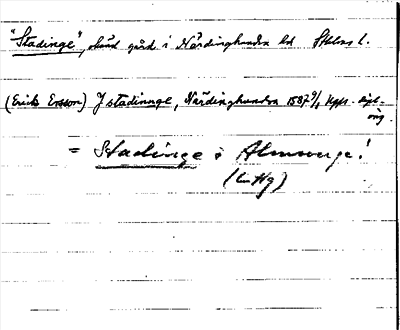 "Stadinge", okänd gård i Närdinghundra hd Sthlms l.
(Erik Ersson) J stadinnge, Närdinghundra 1587 9/1 Upps. dipl.
= Stadinge i Almunge!